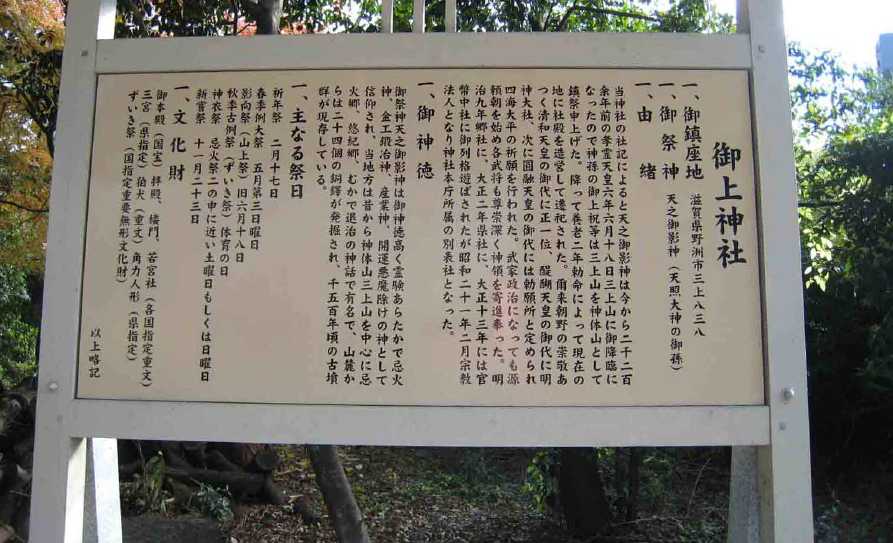 御上神社
一、御鎮座地　滋賀県野洲市三上八三八
一、御祭神　天之御影神（天照大神の御孫）
一、由緒
当神社の社記によると天之御影神は今から二千二百
余年前の孝霊天皇六年六月十八日三上山に御降臨に
なったので神孫の御上祝等は三上山を神体山として
鎮祭申上げた。降って養老二年勅命によって現在の
地に社殿を造営して遷祀された。爾来朝野の崇敬あ
つく清和天皇の御代に正一位、醍醐天皇の御代に明
神大社、次に円融天皇の御代には勅願所と定められ
四海太平の祈願を行われた。武家政治になっても源
頼朝を始め各武将も尊崇深く神領を寄進奉った。明
治九年郷社に、大正二年県社に、大正十三年には官
幣中社に御列格遊ばされたが昭和二十一年二月宗教
法人となり神社本庁所属の別表社となった。
一、御神徳
御祭神天之御影神は御神徳高く霊験あらたかで忌火
神、金工鍛冶神、産業神、開運悪魔除けの神として
信仰され、当地方は昔から神体山三上山を中心に忌
火郷、悠紀郷、むかで退治の神話で有名で、山麓か
らは二十四個の銅鐸が発掘され、千五百年頃の古墳
群が現存している。
一、主なる祭日
祈年祭　二月十七日
春季例大祭　五月第三日曜日
影向祭（山上祭）旧六月十八日
秋季古例祭（ずいき祭）体育の日
神衣祭　忌火祭二の申に近い土曜日もしくは日曜日
新嘗祭　十一月二十三日
一、文化財
御本殿（国宝）拝殿、楼門、若宮社（各国指定重文）
三宮（県指定）狛犬（重文）角力人形（県指定）
ずいき祭（国指定重要無形文化財）
以上略記